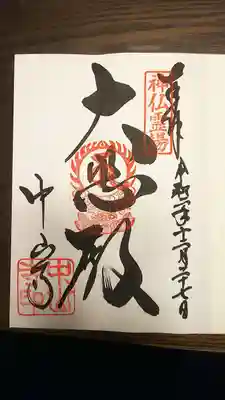 奉拝 令和二年十二月二十七日
神仏霊場
大悲殿
中山寺